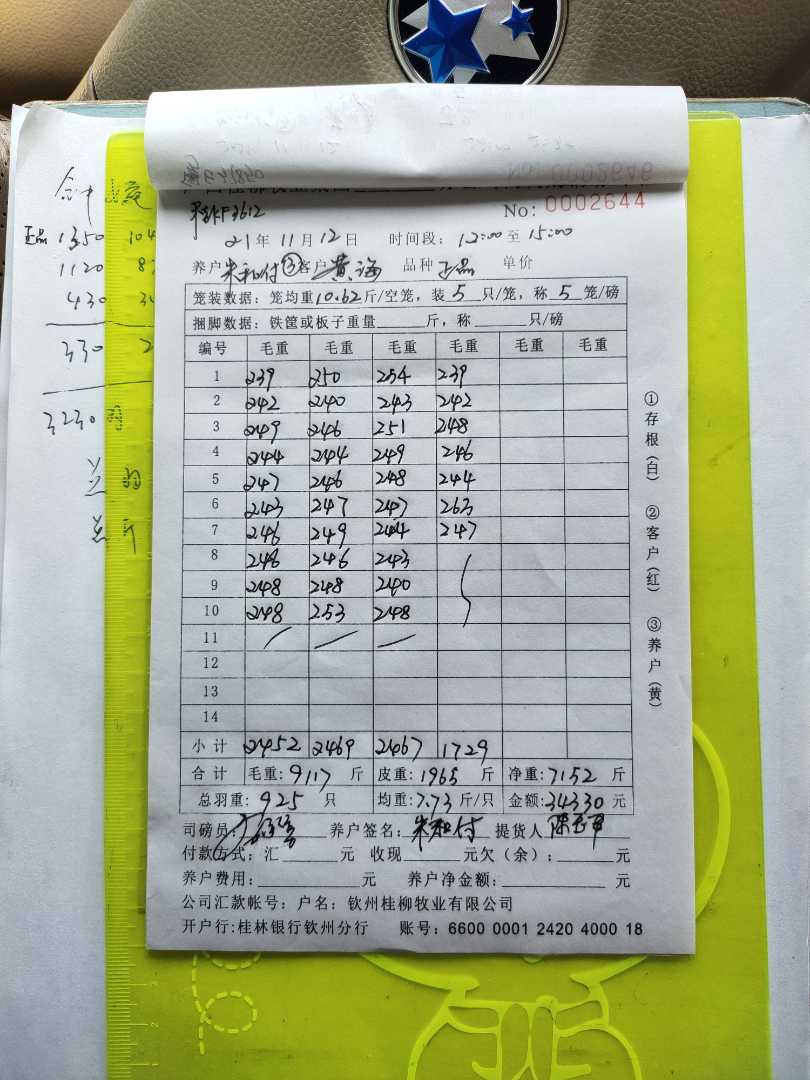 No: 0002644
21年11月12日 时间段: 12:00至15:00
养户 朱和付 ③客户 黄海 品种 正品 单价
笼装数据: 笼均重10.62斤/空笼, 装5只/笼, 称5笼/磅
捆脚数据: 铁筐或板子重量 斤, 称 只/磅
编号 毛重 毛重 毛重 毛重 毛重 毛重
1 239 250 254 239
2 242 240 243 242
3 249 246 251 248
4 244 244 249 246
5 247 246 248 244
6 243 247 247 263
7 246 249 244 247
8 246 246 243
9 248 248 240
10 248 253 248
11
12
13
14
小计 2452 2469 2467 1729
合计 毛重: 9117 斤 皮重: 1965 斤 净重: 7152 斤
总羽重: 925 只 均重: 7.73 斤/只 金额: 34330 元
司磅员: 养户签名: 朱和付 提货人
付款方式: 汇 元 收现 元欠(余): 元
养户费用: 元 养户净金额: 元
公司汇款帐号: 户名: 钦州桂柳牧业有限公司
开户行:桂林银行钦州分行 账号: 6600 0001 2420 4000 18
①存根(白) ②客户(红) ③养户(黄)
正品 1350 104
1120
430
330
3230